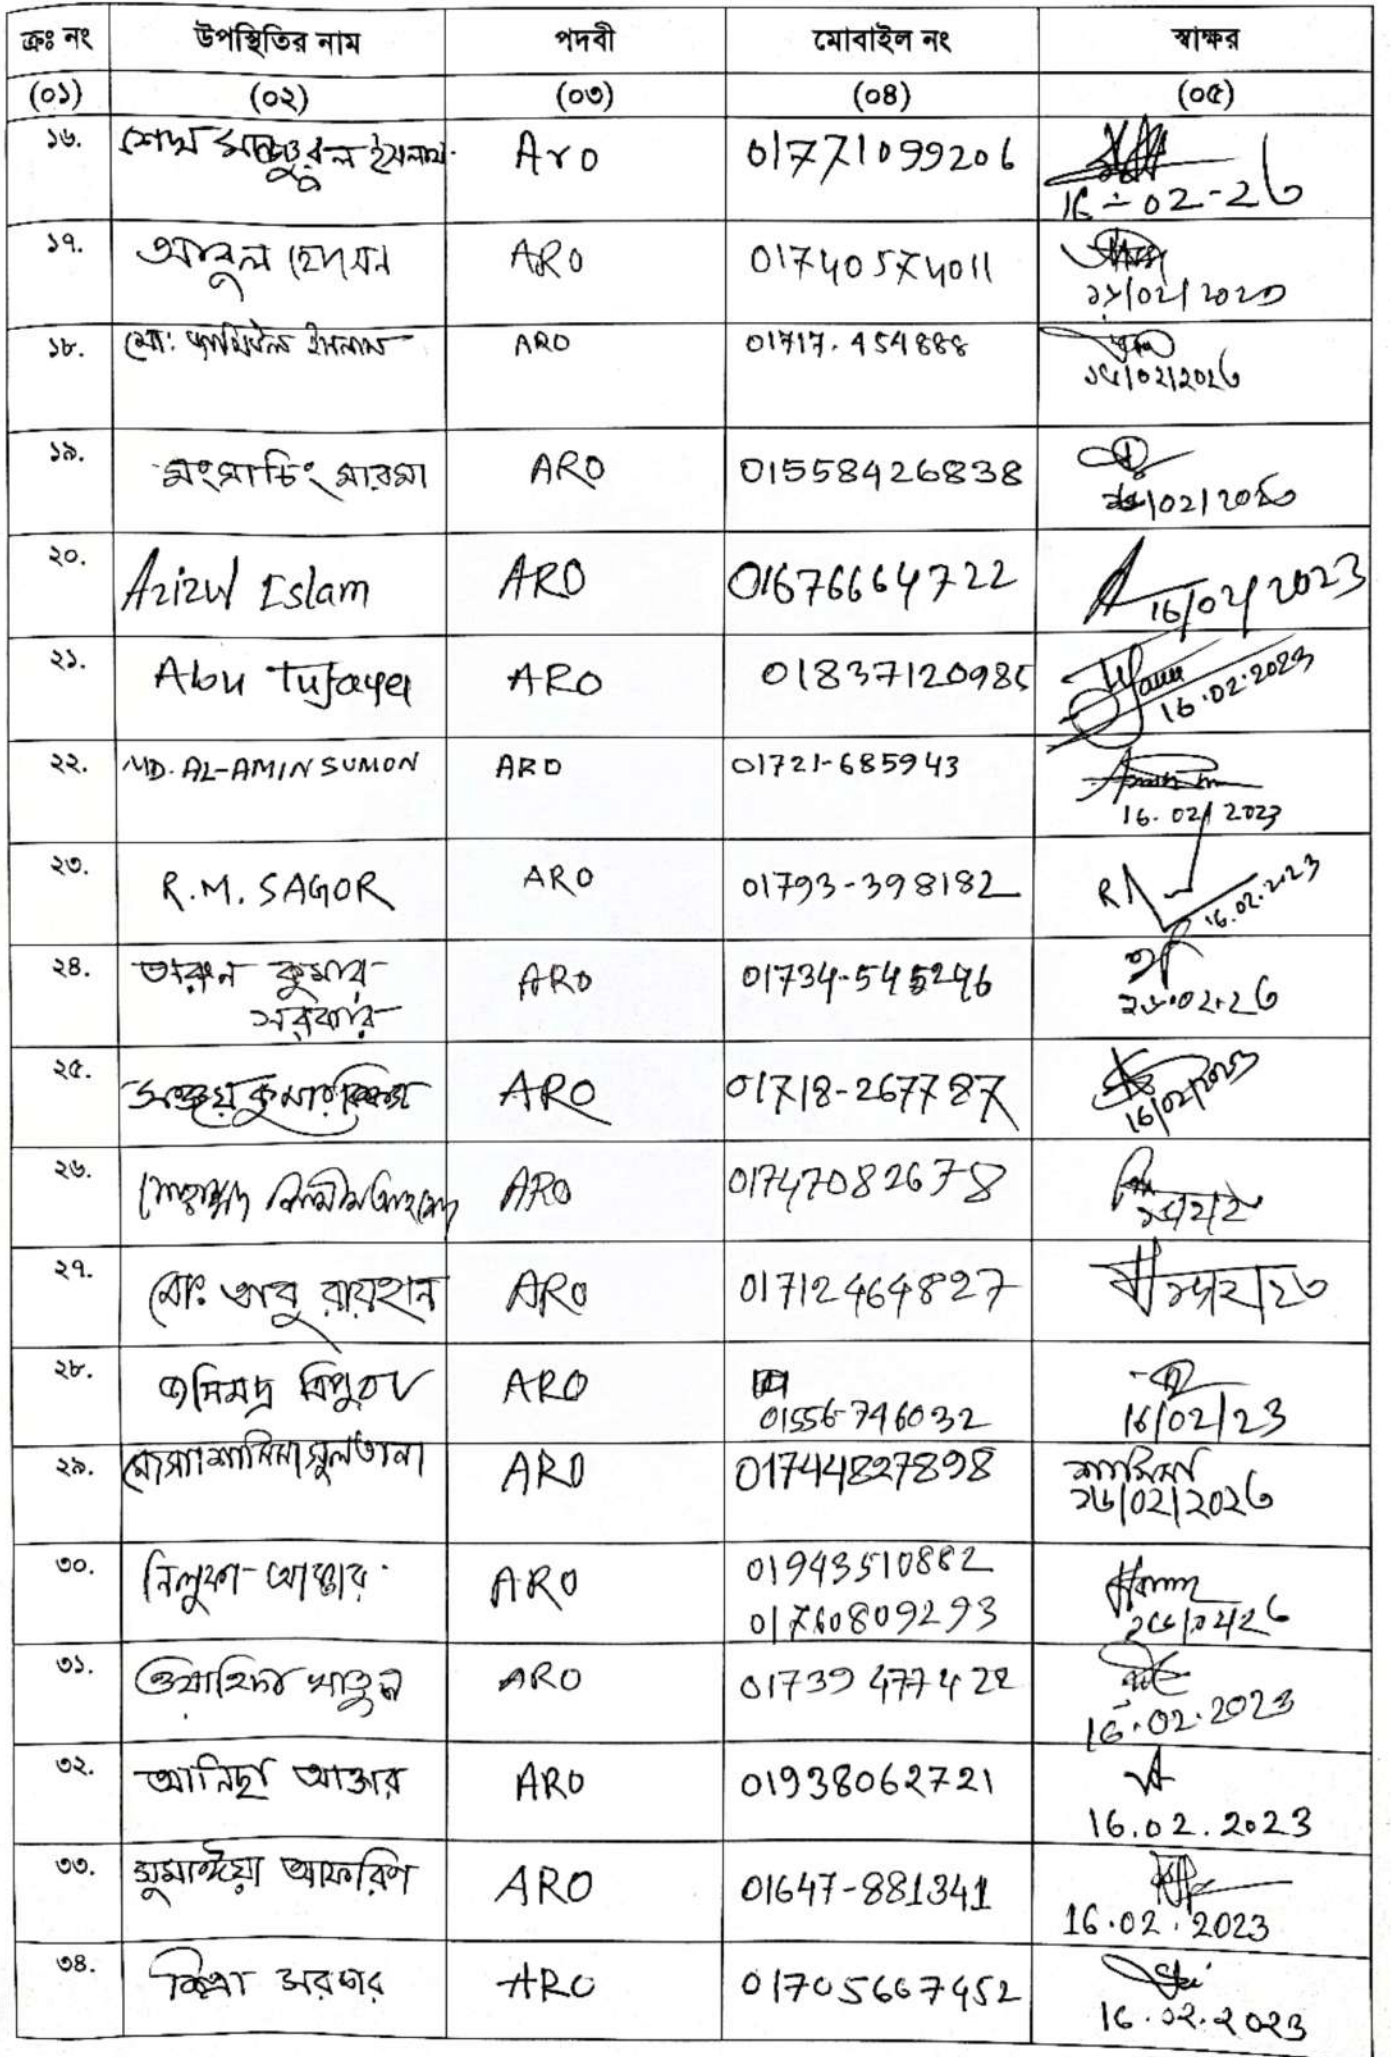 ক্রঃ নং উপস্থিতির নাম পদবী মোবাইল নং স্বাক্ষর
(০১) (০২) (০৩) (০৪) (০৫)
১৬. শেখ ইসলাম ARO 01771099206
16-02-২৩
১৭. আবুল হোসেন ARO 01740574011
১৬/02/২০২৩
১৮. মো: ইসলাম ARO 01717-454888
১৬/02/202৩
১৯. মংসাচিং মারমা ARO 01558426838
/02/
২০. Azizul Islam ARO 01676664722
16/02/2023
২১. Abu Tufayel ARO 01837120985
16.02.2023
২২. MD. AL-AMIN SUMON ARO 01721-685943
16.02/2023
২৩. R.M. SAGOR ARO 01793-398182
16.02.2023
২৪. তারুন কুমার ARO 01734-545296
সরকার ১৬.০২.২৩
২৫. কুমার ARO 01718-267787
16/02/2023
২৬. মোহাম্মদ ARO 01747082678
২৭. মোঃ আবু রায়হান ARO 01712464827
১৬/২/২৩
২৮. ত্রিপুরা ARO
01556-746032 16/02/23
২৯. মোসাঃ শামিমা সুলতানা ARO 01744827898 শামিমা
১৬/02/202৩
৩০. নিলুফা আক্তার ARO 01943510882
01760809293 ১৬/০২/২৩
৩১. ওয়াহিদা খাতুন ARO 01739477422
16.02.2023
৩২. আনিছা আক্তার ARO 01938062721
16.02.2023
৩৩. সুমাইয়া আফরিন ARO 01647-881341
16.02.2023
৩৪. সরদার ARO 01705667452
16.02.2023